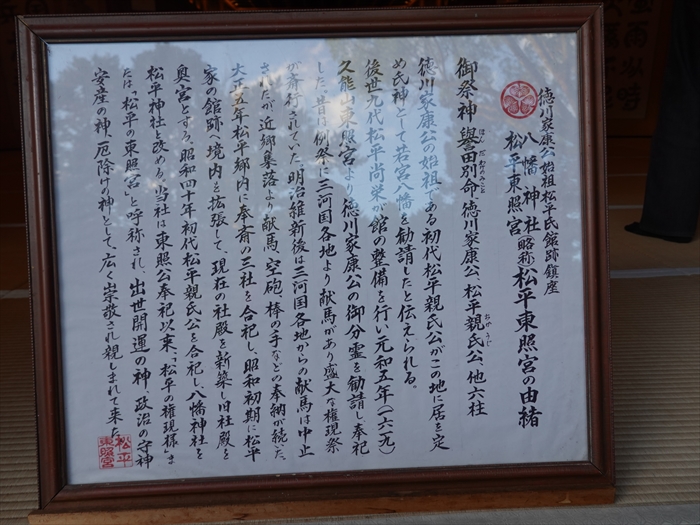 徳川家康公始祖松平氏館跡鎮座
八幡神社
松平東照宮
(略称)松平東照宮の由緒
御祭神 譽田別命、徳川家康公、松平親氏公、他六柱
ほんだわけのみこと
おやうじ
徳川家康公の始祖である初代松平親氏公がこの地に居を定
め氏神として若宮八幡を勧請したと伝えられる。
後世九代松平尚栄が館の整備を行い元和五年(一六一九)
久能山東照宮より徳川家康公の御分霊を勧請し奉祀
した。昔月例祭に三河国各地より献馬があり盛大な権現祭
が斎行されていた。明治維新後は三河国各地からの献馬は中止
されたが近郷集落より献馬、空砲、棒の手などの奉納が続いた。
大正五年松平郷内に奉斎の三社を合祀し、昭和初期に松平
家の館跡へ境内を拡張して、現在の社殿を新築し旧社殿を
奥宮とする。昭和四十年初代松平親氏公を合祀し、八幡神社を
松平神社と改める。当社は東照公奉祀以来、「松平の権現様」ま
たは「松平の東照宮」と呼称され、出世開運の神、政治の守神
安産の神、厄除けの神として、広く崇敬され親しまれて来た。
松平
東照宮